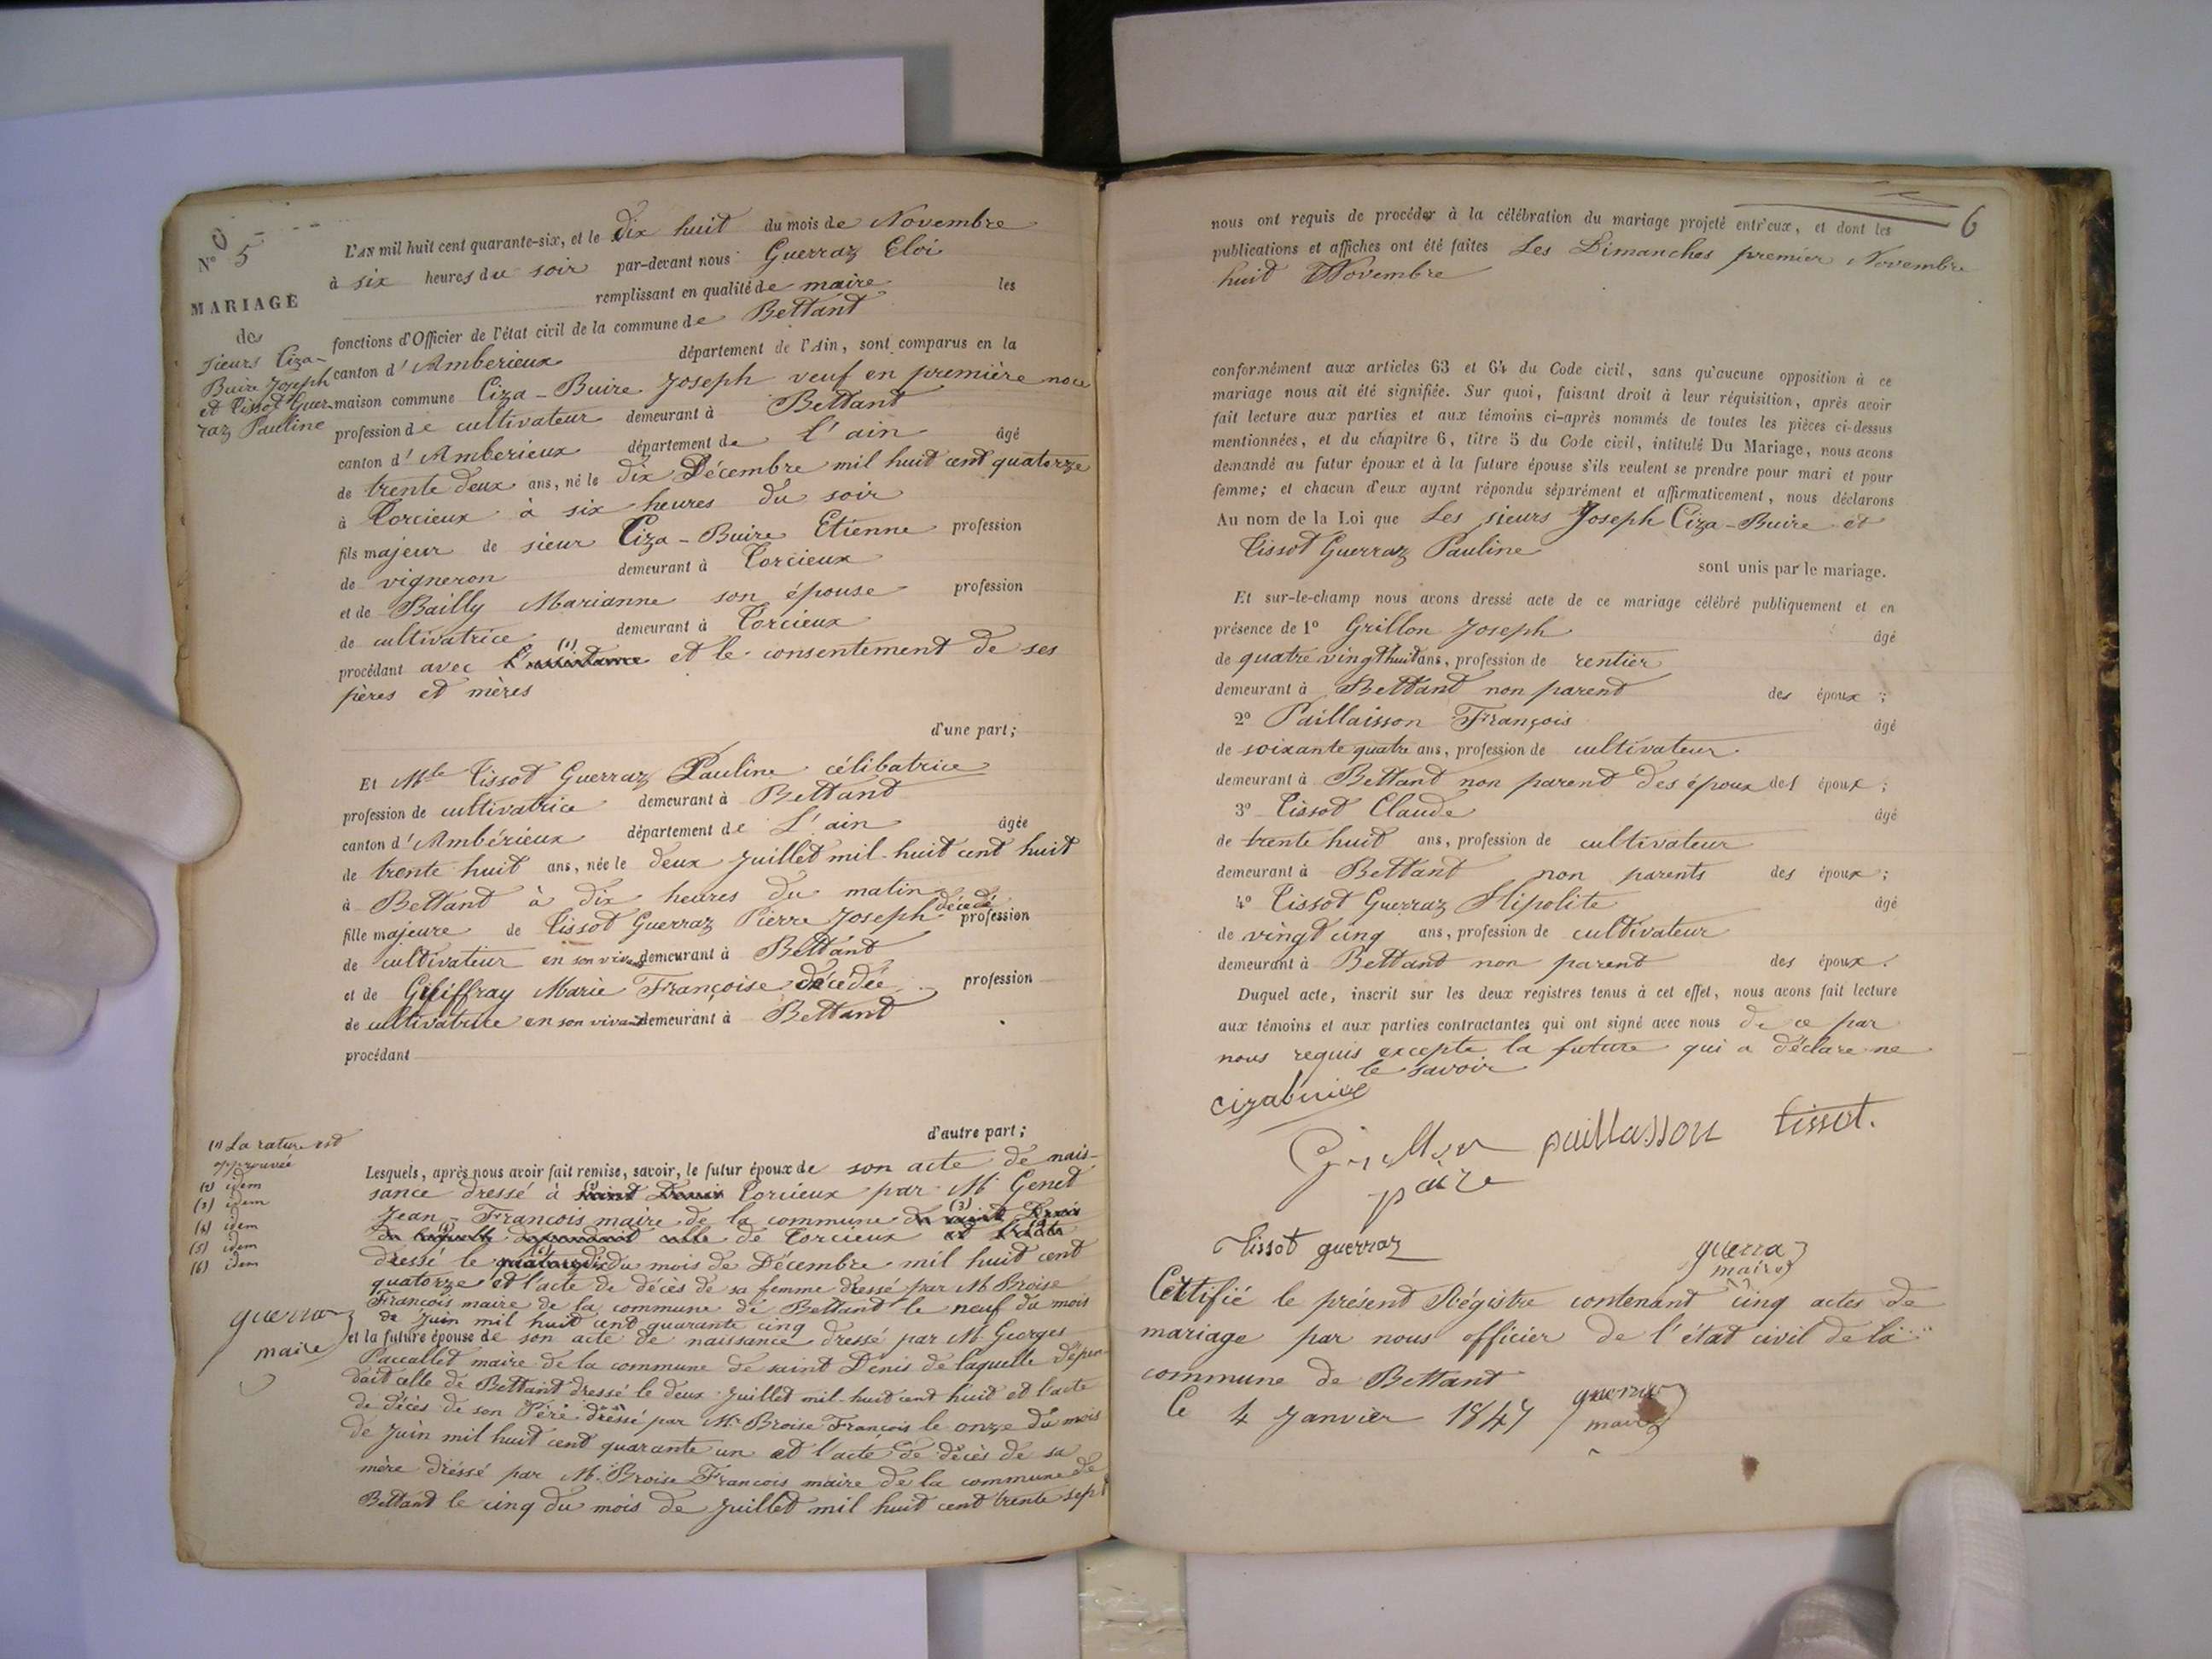 No 5
MARIAGE
des
sieurs Ciza-
Buire Joseph
et Tissot Guer-
raz Pauline
L'AN mil huit cent quarante-six, et le dix huit du mois de Novembre
à six heures du soir par-devant nous Guerraz Eloi
remplissant en qualité de maire les
fonctions d'Officier de l'état civil de la commune de Bettant
canton d'Ambérieux département de l'Ain, sont comparus en la
maison commune Ciza-Buire Joseph veuf en première noce
profession de cultivateur demeurant à Bettant
canton d'Amberieux département de L'ain âgé
de trente deux ans, né le dix Décembre mil huit cent quatorze
à Torcieux à six heures du soir
fils majeur de sieur Ciza-Buire Etienne profession
de vigneron demeurant à Torcieux
et de Bailly Marianne son épouse profession
de cultivatrice demeurant à Torcieux
procédant avec (1) l'assistance et le consentement de ses
pères et mères
d'une part;
Et Mlle Tissot Guerraz Pauline célibatrice
profession de cultivatrice demeurant à Bettant
canton d'Ambérieux département de L'ain âgée
de trente huit ans, née le deux Juillet mil-huit cent huit
à Bettant à dix heures du matin
fille majeure de Tissot Guerraz Pierre Joseph décédé profession
de cultivateur en son vivant demeurant à Bettant
et de Giliffray Marie Françoise décédée profession
de cultivatrice en son vivant demeurant à Bettant
procédant
d'autre part;
(1) La rature est
approuvée
(2) idem
(3) idem
(4) idem
(5) idem
(6) idem
guerraz
maire
Lesquels, après nous avoir fait remise, savoir, le futur époux de son acte de nais-
sance dressé à saint Denis Torcieux par Mr Genet
Jean-François maire de la commune (3) de saint Denis
de laquelle dépendait celle de Torcieux
dressé le du mois de Décembre mil huit cent
quatorze et l'acte de décès de sa femme dressé par M Broise
François maire de la commune de Bettant le neuf du mois
de Juin mil huit cent quarante cinq
et la future épouse de son acte de naissance dressé par M. Georges
Paccallet maire de la commune de saint Denis de laquelle dépen-
dait celle de Bettant dressé le deux Juillet mil-huit cent huit et l'acte
de décès de son Père dressé par Mr Broise François le onze du mois
de Juin mil huit cent quarante un et l'acte de décès de sa
mère dréssé par M. Broise François maire de la commune de
Bettant le cinq du mois de Juillet mil huit cent trente sept
6
nous ont requis de procéder à la célébration du mariage projeté entr'eux, et dont les
publications et affiches ont été faites Les Dimanches premier Novembre
huit Novembre
conformément aux articles 63 et 64 du Code civil, sans qu'aucune opposition à ce
mariage nous ait été signifiée. Sur quoi, faisant droit à leur réquisition, après avoir
fait lecture aux parties et aux témoins ci-après nommés de toutes les pièces ci-dessus
mentionnées, et du chapitre 6, titre 5 du Code civil, intitulé Du Mariage, nous avons
demandé au futur époux et à la future épouse s'ils veulent se prendre pour mari et pour
femme; et chacun d'eux ayant répondu séparément et affirmativement, nous déclarons
Au nom de la Loi que Les sieurs Joseph Ciza-Buire et
Tissot Guerraz Pauline
sont unis par le mariage.
Et sur-le-champ nous avons dressé acte de ce mariage célébré publiquement et en
présence de 1o Grillon Joseph âgé
de quatre vingt huit ans, profession de rentier
demeurant à Bettant non parent des époux;
2o Paillaisson François âgé
de soixante quatre ans, profession de cultivateur
demeurant à Bettant non parent des époux des époux;
3o Tissot Claude âgé
de trente huit ans, profession de cultivateur
demeurant à Bettant non parents des époux;
4o Tissot Guerraz Hipolite âgé
de vingt cinq ans, profession de cultivateur
demeurant à Bettant non parent des époux.
Duquel acte, inscrit sur les deux registres tenus à cet effet, nous avons fait lecture
aux témoins et aux parties contractantes qui ont signé avec nous de ce par
nous requis excepte la future qui a déclare ne
le savoir
cizabuire
Grillon paillasson tissot.
paire
Tissot guerraz guerraz
maire
Cértifié le présent Régistre contenant cinq actes de
mariage par nous officier de l'état civil de la
commune de Bettant
Le 4 Janvier 1847 guerraz
maire